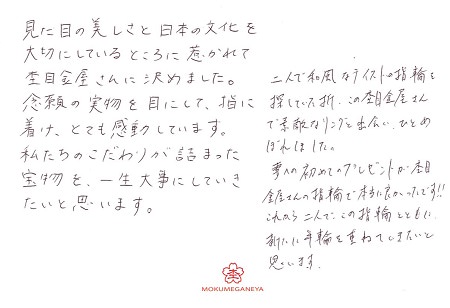 見た目の美しさと日本の文化を
大切にしているところに惹かれて
杢目金屋さんに決めました。
念願の実物を目にして、指に
着け、とても感動しています。
私たちのこだわりが詰まった
宝物を、一生大事にしていき
たいと思います。
二人で和風なテイストの指輪を
探していた折、この杢目金屋さん
で素敵なリングと出会い、ひとめ
ぼれしました。
妻への初めてのプレゼントが杢目
金屋さんの指輪で本当に良かったです!!
これから二人で、この指輪とともに、
新たに年輪を重ねていきたいと
思います。
MOKUMEGANEYA